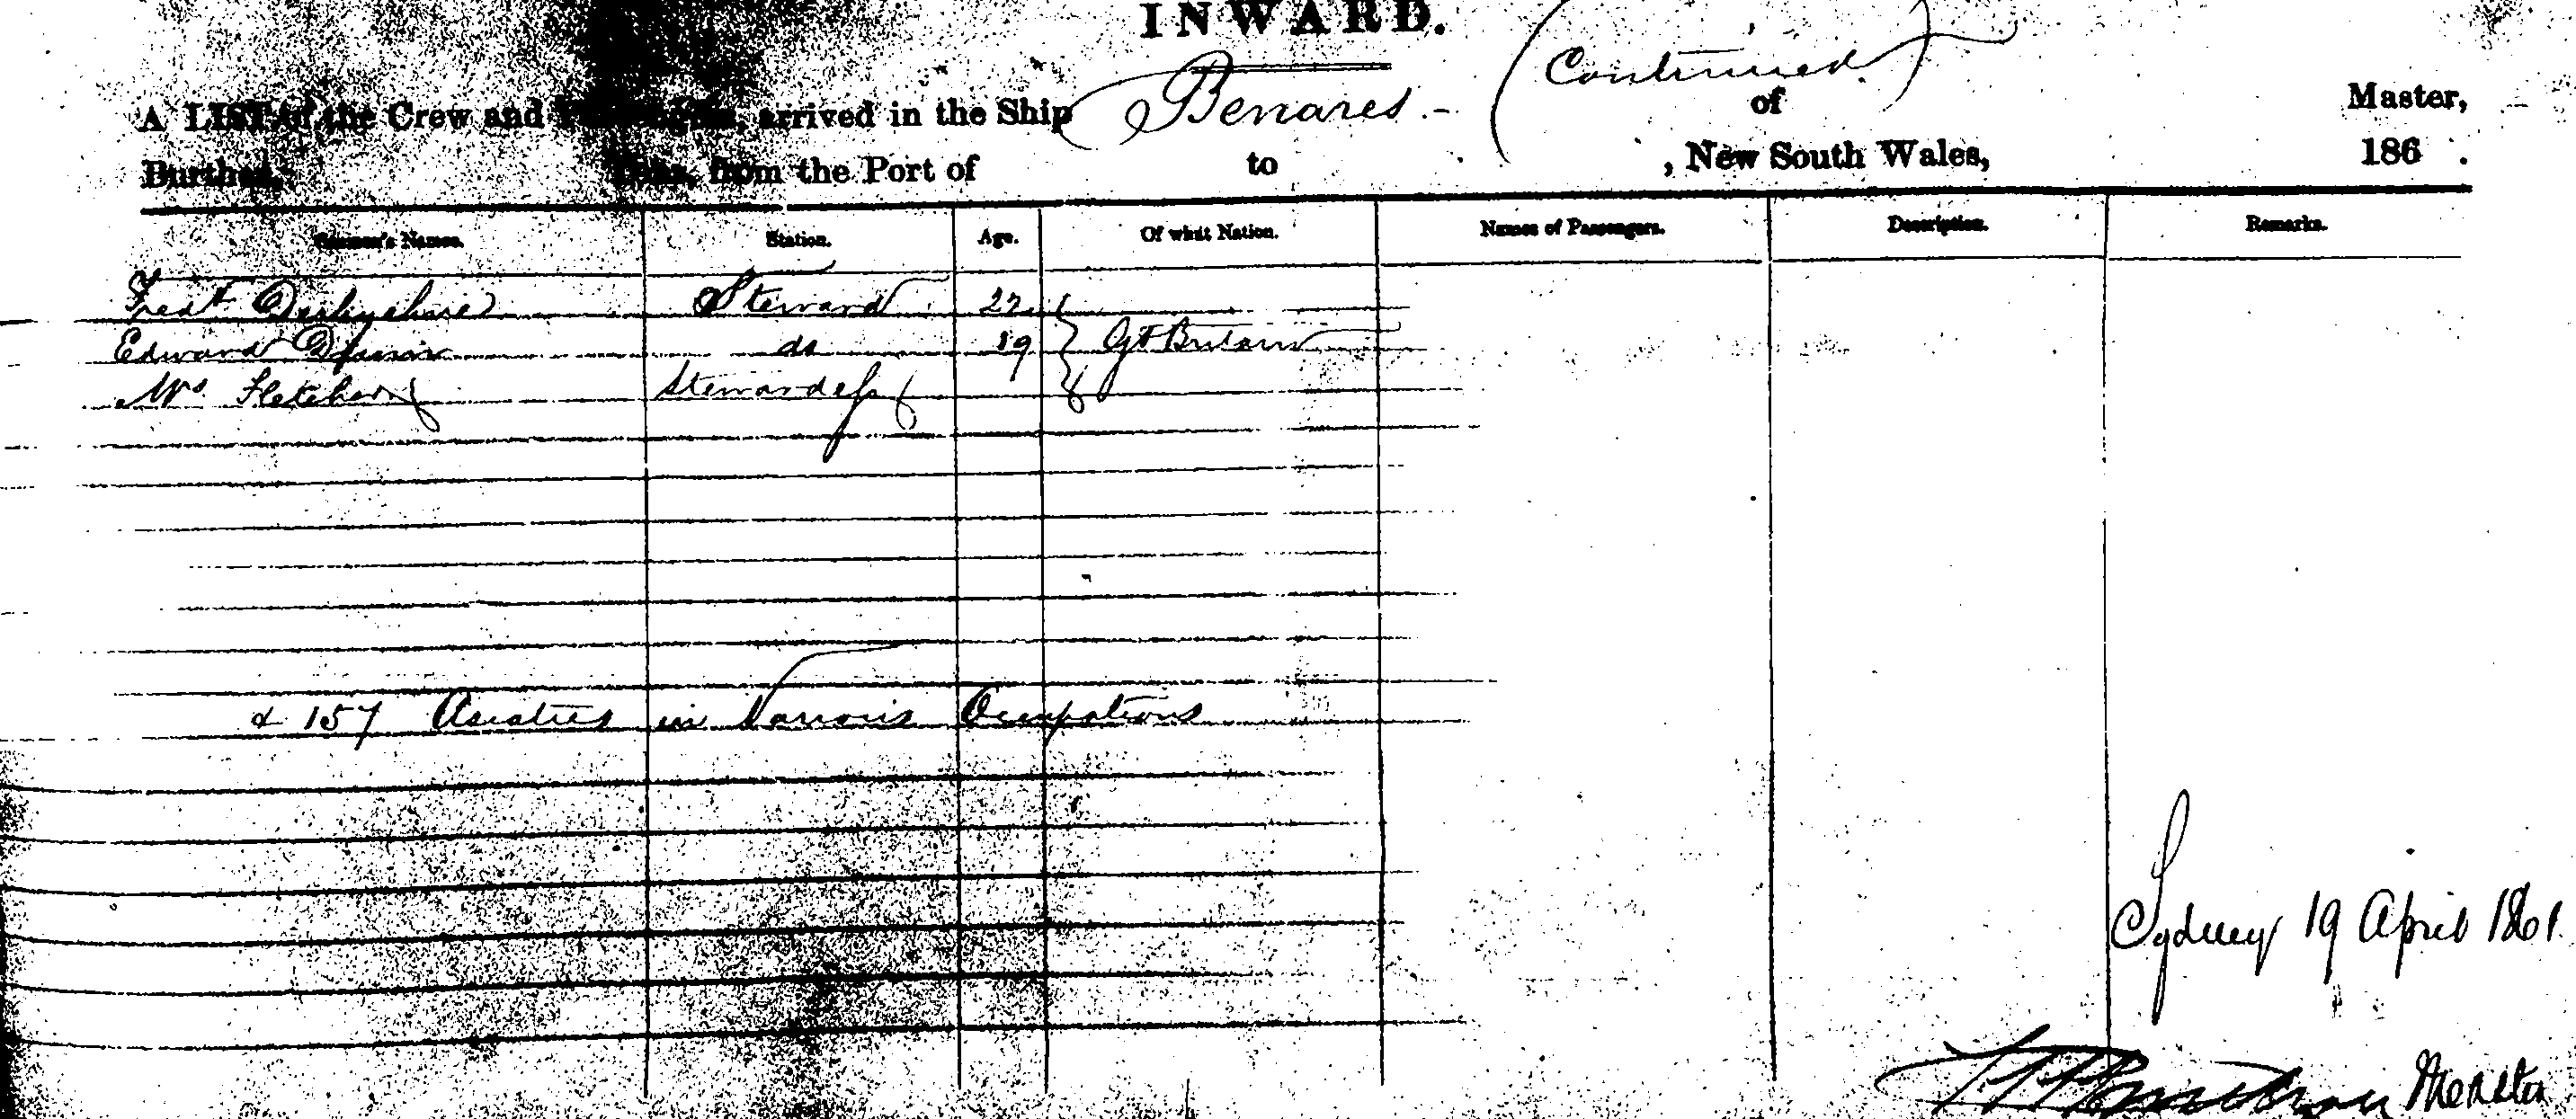 INWARD.
(Continued)
A LIST of the Crew and Passengers, arrived in the Ship Benares. - of Master,
Burthen, Tons, from the Port of to , New South Wales, 186 .
Seamen's Names. Station. Age. Of what Nation. Names of Passengers. Description. Remarks.
Fredk Derbyshire Steward 22
Edward do 19 Gt Britain
Mrs Fletcher Stewardess
& 157 Asiatics in Various Occupations
Sydney 19 April 1861.
Master